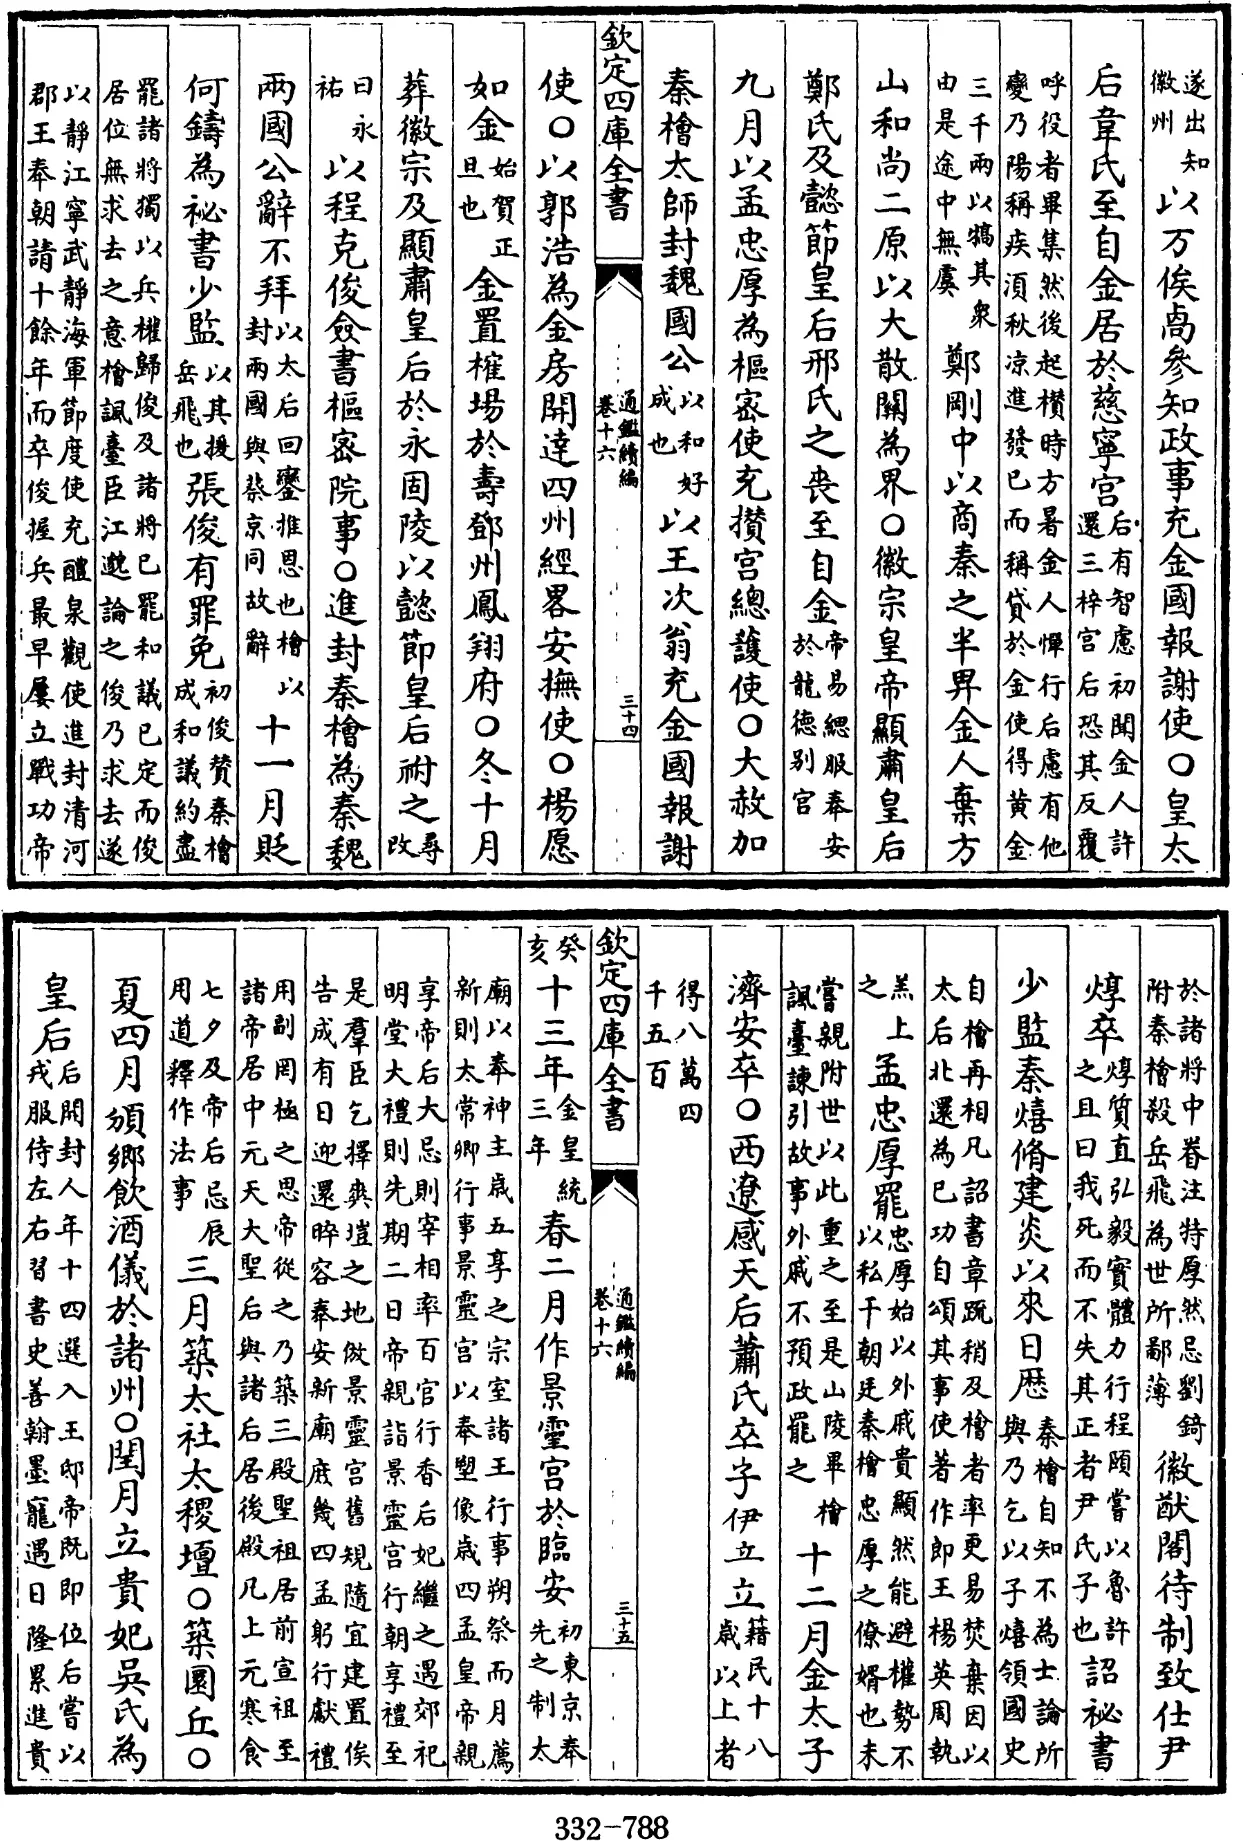 遂出知徽州以万俟卨參知政事充金國報謝使〇皇太
后韋氏至自金居於慈寧宮后有智慮初聞金人許還三梓宮后恐其反覆
呼役者畢集然後起欑時方暑金人憚行后慮有他變乃陽稱疾湏秋凉進發已而稱貸於金使得黄金
三千兩以犒其衆由是途中無虞鄭剛中以商秦之半畀金人棄方
山和尚二原以大散關為界〇徽宗皇帝顯肅皇后
鄭氏及懿節皇后邢氏之喪至自金帝易緦服奉安於龍德别宮
九月以孟忠厚為樞密使充攅宮總護使〇大赦加
秦檜太師封魏國公以和好成也以王次翁充金國報謝
欽定四庫全書
通鑑續編
卷十六
三十四
使〇以郭浩為金房開達四州經畧安撫使〇楊愿
如金始賀正旦也金置榷場於壽鄧州鳳翔府〇冬十月
葬徽宗及顯肅皇后於永固陵以懿節皇后祔之尋改
曰永祐以程克俊僉書樞密院事〇進封秦檜為秦魏
兩國公辭不拜以太后回鑾推恩也檜以封兩國與蔡京同故辭十一月貶
何鑄為祕書少監以其援岳飛也張俊有罪免初俊贊秦檜成和議約盡
罷諸將獨以兵權歸俊及諸將已罷和議已定而俊居位無求去之意檜諷臺臣江邈論之俊乃求去遂
以靜江寧武靜海軍節度使充醴泉觀使進封清河郡王奉朝請十餘年而卒俊握兵最早屢立戰功帝
於諸將中眷注特厚然忌劉錡附秦檜殺岳飛為世所鄙薄徽猷閣待制致仕尹
焞卒焞質直弘毅實體力行程頤嘗以魯許之且曰我死而不失其正者尹氏子也詔祕書
少監秦熺脩建炎以來日歷秦檜自知不為士論所與乃乞以子熺領國史
自檜再相凡詔書章䟽稍及檜者率更易焚棄因以太后北還為已功自頌其事使著作郎王楊英周執
羔上之孟忠厚罷忠厚始以外戚貴顯然能避權勢不以私干朝廷秦檜忠厚之僚婿也未
嘗親附世以此重之至是山陵畢檜諷臺諫引故事外戚不預政罷之十二月金太子
濟安卒〇西遼感天后蕭氏卒子伊立立籍民十八歲以上者
得八萬四千五百
欽定四庫全書
通鑑續編
卷十六
三十五
癸亥十三年金皇統三年春二月作景靈宮於臨安初東京奉先之制太
廟以奉神主歲五享之宗室諸王行事朔祭而月薦新則太常卿行事景靈宮以奉塑像歲四孟皇帝親
享帝后大忌則宰相率百官行香后妃繼之遇郊祀明堂大禮則先期二日帝親詣景靈宮行朝享禮至
是羣臣乞擇爽塏之地倣景靈宮舊規隨宜建置俟告成有日迎還晬容奉安新廟庻幾四孟躬行獻禮
用副罔極之思帝從之乃築三殿聖祖居前宣祖至諸帝居中元天大聖后與諸后居後殿凡上元寒食
七夕及帝后忌辰用道釋作法事三月築太社太稷壇〇築圜丘〇
夏四月頒鄉飲酒儀於諸州〇閏月立貴妃吳氏為
皇后后開封人年十四選入王邸帝既即位后嘗以戎服侍左右習書史善翰墨寵遇日隆累進貴
332-788